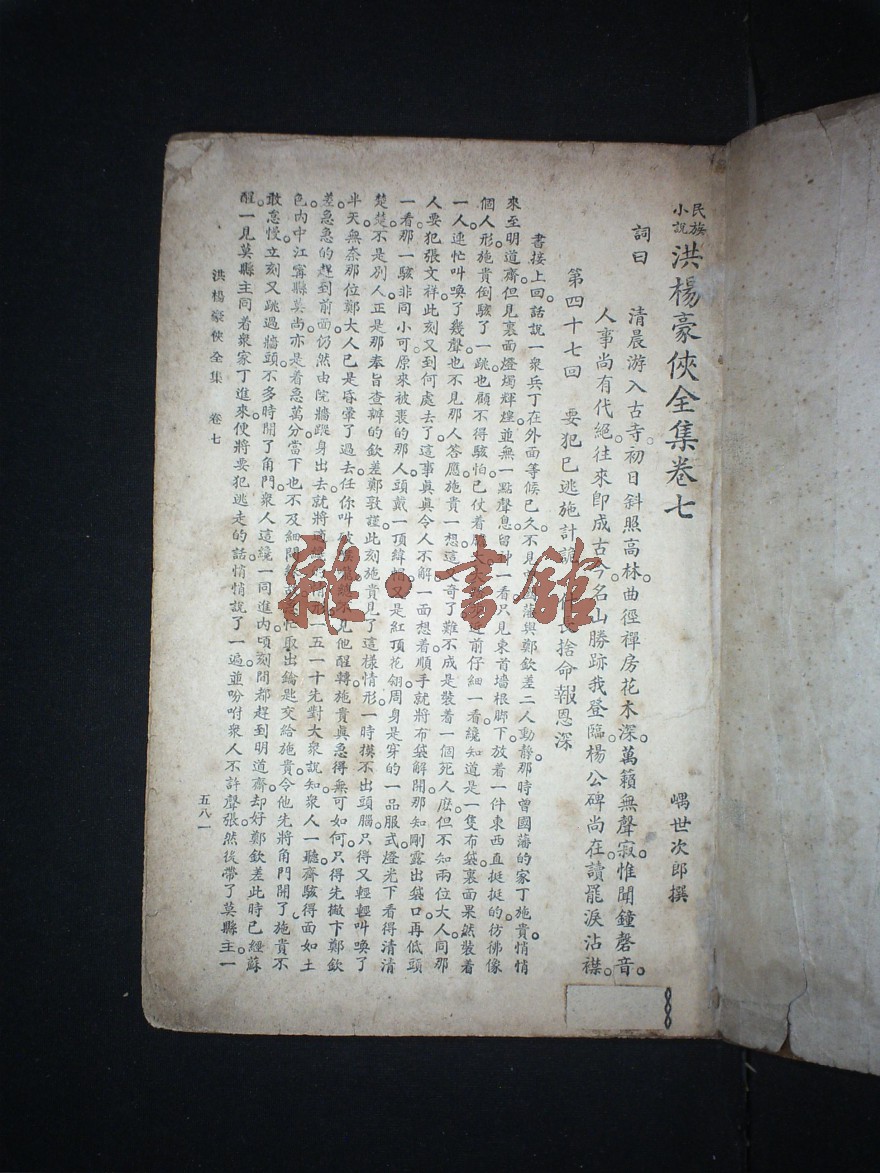 民族
小說
洪楊豪俠全集卷七
嵎世次郎撰
詞曰
清晨游入古寺。初日斜照高林。曲徑禪房花木深。萬籟無聲寂。惟聞鐘磬音。
人事尚有代絕。往來即成古今。名山勝跡我登臨。楊公碑尚在。讀罷淚沾襟。
第四十七回 要犯已逃施計 捨命報恩深
書接上回。話說一衆兵丁在外面等候已久。不見 藩與鄭欽差二人動靜。那時曾國藩的家丁施貴。悄悄
來至明道齋。但見裏面燈燭輝煌。並無一點聲息。留神一看。只見東首墻根脚下。放着一件東西。直挺挺的。彷彿像
個人形。施貴倒駭了一跳。也顧不得駭怕。已仗着 近前仔細一看。纔知道是一隻布袋。裏面果然裝着
一人。連忙叫喚了幾聲。也不見那人答應。施貴一想。這 奇了。難不成是裝着一個死人麽。但不知兩位大人。同那
人要犯張文祥。此刻又到何處去了。這事眞眞令人不解。一面想着。順手就將布袋解開。那知剛露出袋口。再低頭
一看。那一駭非同小可。原來被裹的那人。頭戴一頂緯帽。又是紅頂花翎。周身是穿的一品服式。燈光下看得清清
楚楚。不是別人。正是那奉旨查辦的欽差鄭敦謹。此刻施貴見了這樣情形。一時摸不出頭腦。只得又輕輕叫喚了
半天。無奈那位鄭大人已是昏暈了過去。任你叫 不見他醒轉。施貴眞急得無可如何。只得先撇下鄭欽
差。急急的趕到前面。仍然由院牆跳身出去。就將 一五一十。先對大衆說知。衆人一聽。齊駭得面如土
色。內中江寗縣莫尚亦是着急萬分。當下也不及細問 忙取出鑰匙。交給施貴。令他先將角門開了。施貴不
敢怠慢。立刻又跳過牆頭。不多時。開了角門。衆人這纔一同進內。頃刻間都趕到明道齋。却好鄭欽差此時已經蘇
醒。一見莫縣主同着衆家丁進來。便將要犯逃走的話。悄悄說了一遍。並吩咐衆人不許聲張。然後帶了莫縣主一
洪楊豪俠全集 卷七
五八一
雜·書館